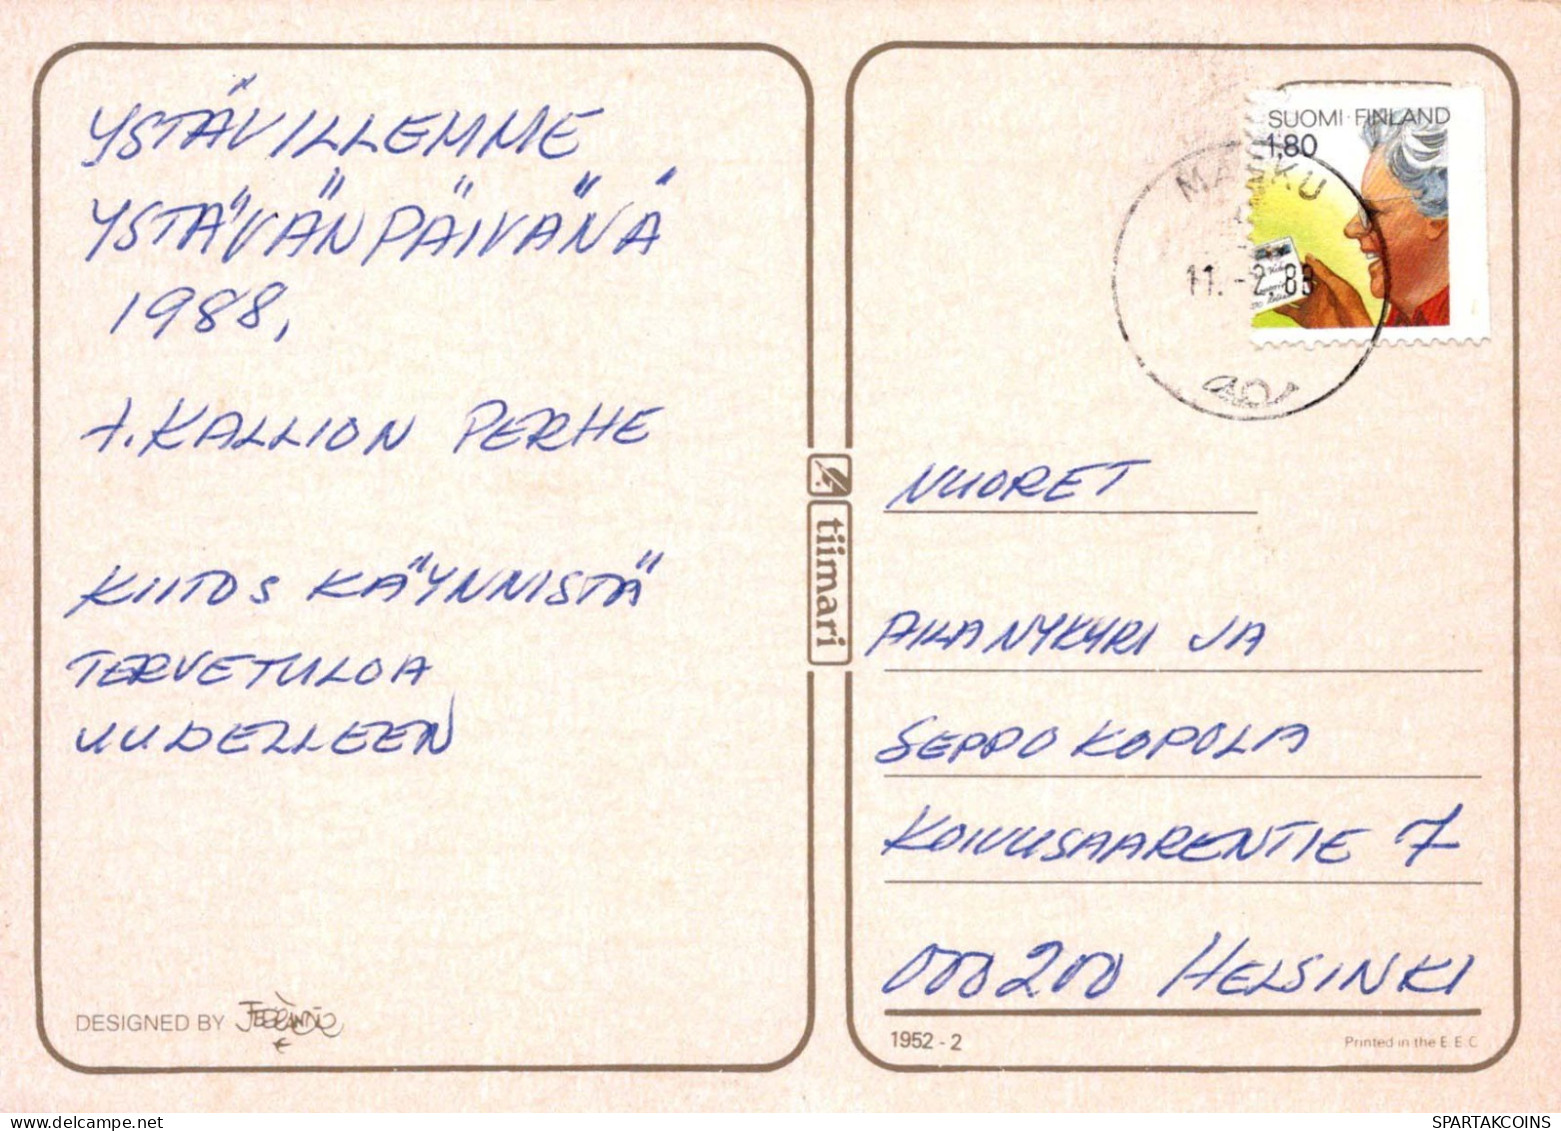 YSTÄVILLEMME
YSTÄVÄNPÄIVÄNÄ
1988,
A. KALLION PERHE
KIITOS KÄYNNISTÄ
TERVETULOA
UUDELLEEN
DESIGNED BY
tiimari
SUOMI·FINLAND
1,80
11.-2.88
NUORET
PILA NYKYRI JA
SEPPO KOPOLA
KOIVUSAARENTIE 7
000200 HELSINKI
1952-2
Printed in the E.E.C
SPARTAKCOINS